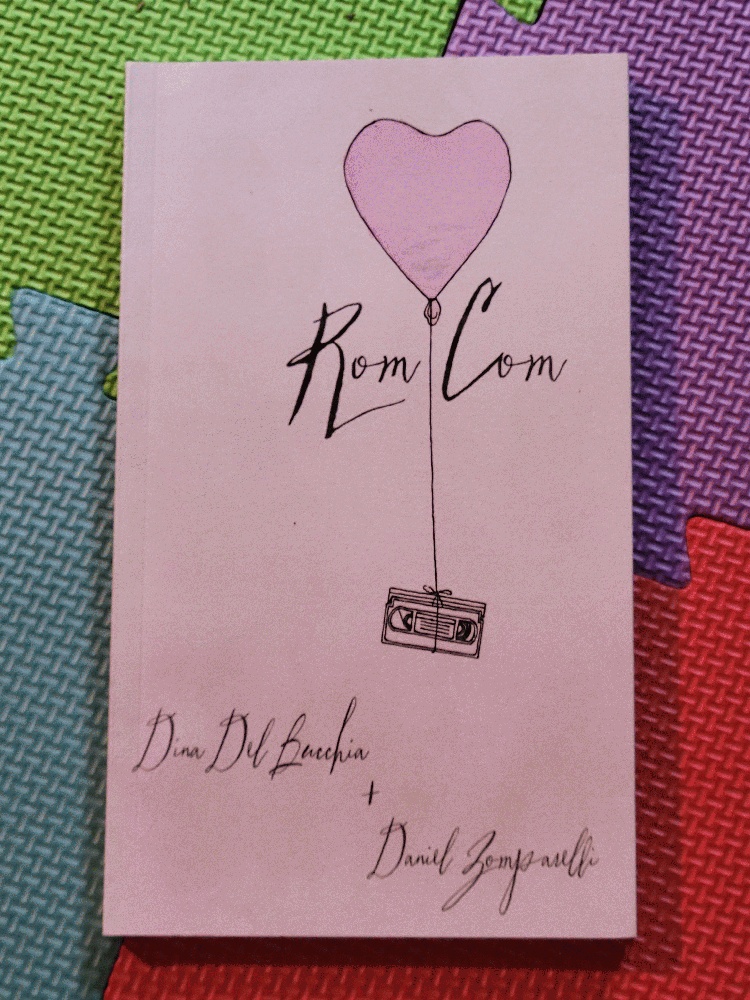 Rom Com
Dina Del Bucchia
+
Daniel Zomparelli